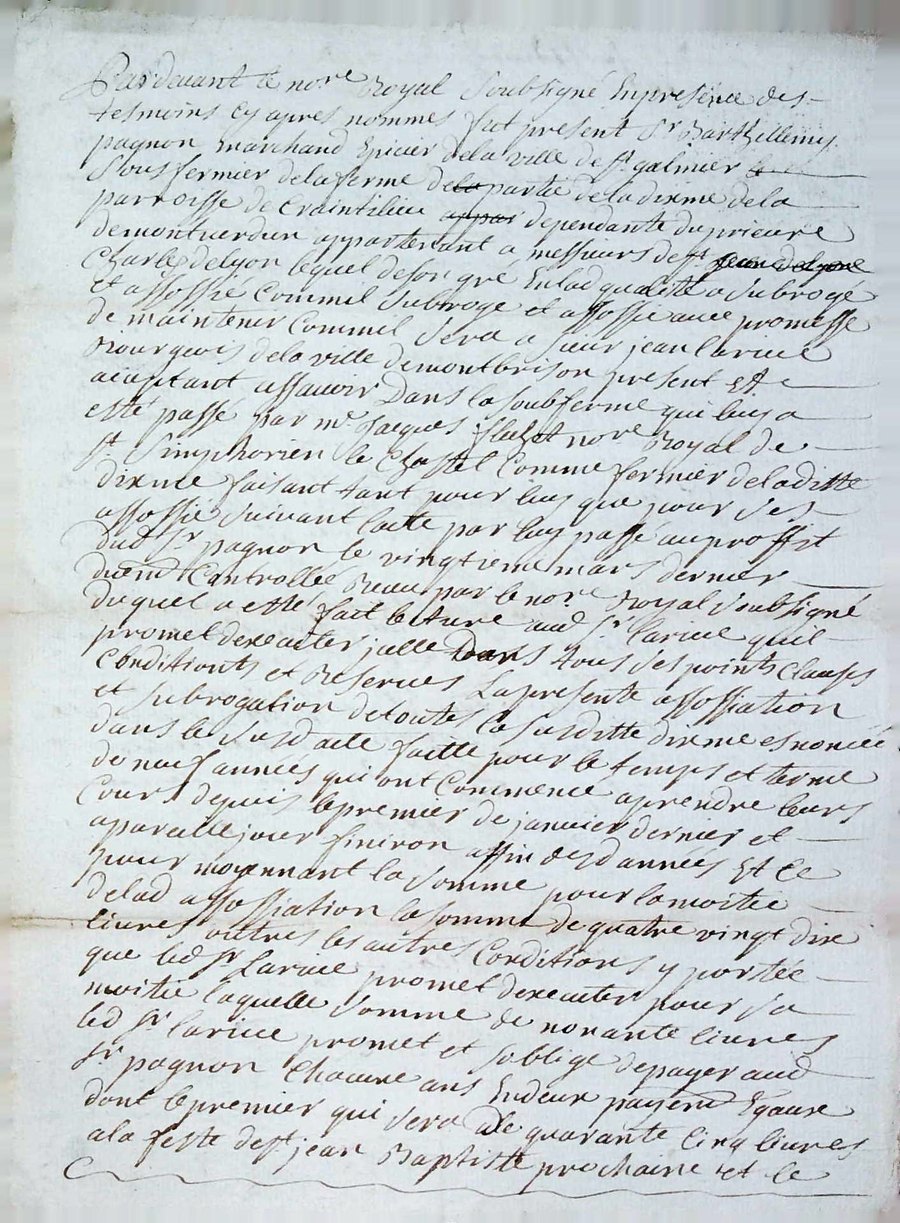 Pardevant le no.re Royal Soubsigné Enpresence des
tesmoins cy apres nommes fut present Sr Barthillemy
pagnon marchand Epicier dela ville de St galmier
Sousfermier dela ferme dela partie dela dixme dela
parroisse de Craintilieu appar dependante du prieuré
demontverdun appartenant a messieurs de St Jean de Lyon
Charles delyon lequel deson gré Enlad qualité a Subrogé
et assossié Commil Subroge et assossie avec promesse
de maintenir Commil Sera a sieur jean larice
Bourgeois dela ville demontbrison present Et
aceptant assavoir Dans la soubferme qui luy a
esté passé par me Jacques no.re Royal de
St Simphorien le Chastel Comme fermier deladitte
dixme faisant tant pour luy que pour ses
assossié suivant lacte par luy passé auproffit
dud Sr pagnon le vingtieme mars dernier
duem.t Controllée Receu par le no.re Royal Soubsigné
duquel a esté fait lecture aud Sr larice quil
promet dexecuter jcelle Dans tous ses points Clauses
Conditionts et Reserves La presente assossiation
et subrogation detoutes la susditte dixme esnoncée
dans le susd acte faitte pour le temps et terme
de neuf années qui ont Commencé aprendre leurs
Cours depuis lepremier de janvier dernier et
apareille jour finiron affin desd années Et Ce
pour moyennant la somme pour la moitié
delad assossiation la somme de quatre vingt dix
livres outres les autres Conditions y portée
que led Sr Larice promet dexecuter pour sa
moitié laquelle somme de nonante livres
led Sr larice promet et soblige depayer aud
Sr pagnon Chacune ans Endeux payem.t Egaux
dont lepremier qui sera de quarante Cinq livres
ala feste de St jean Baptiste prochaine et le